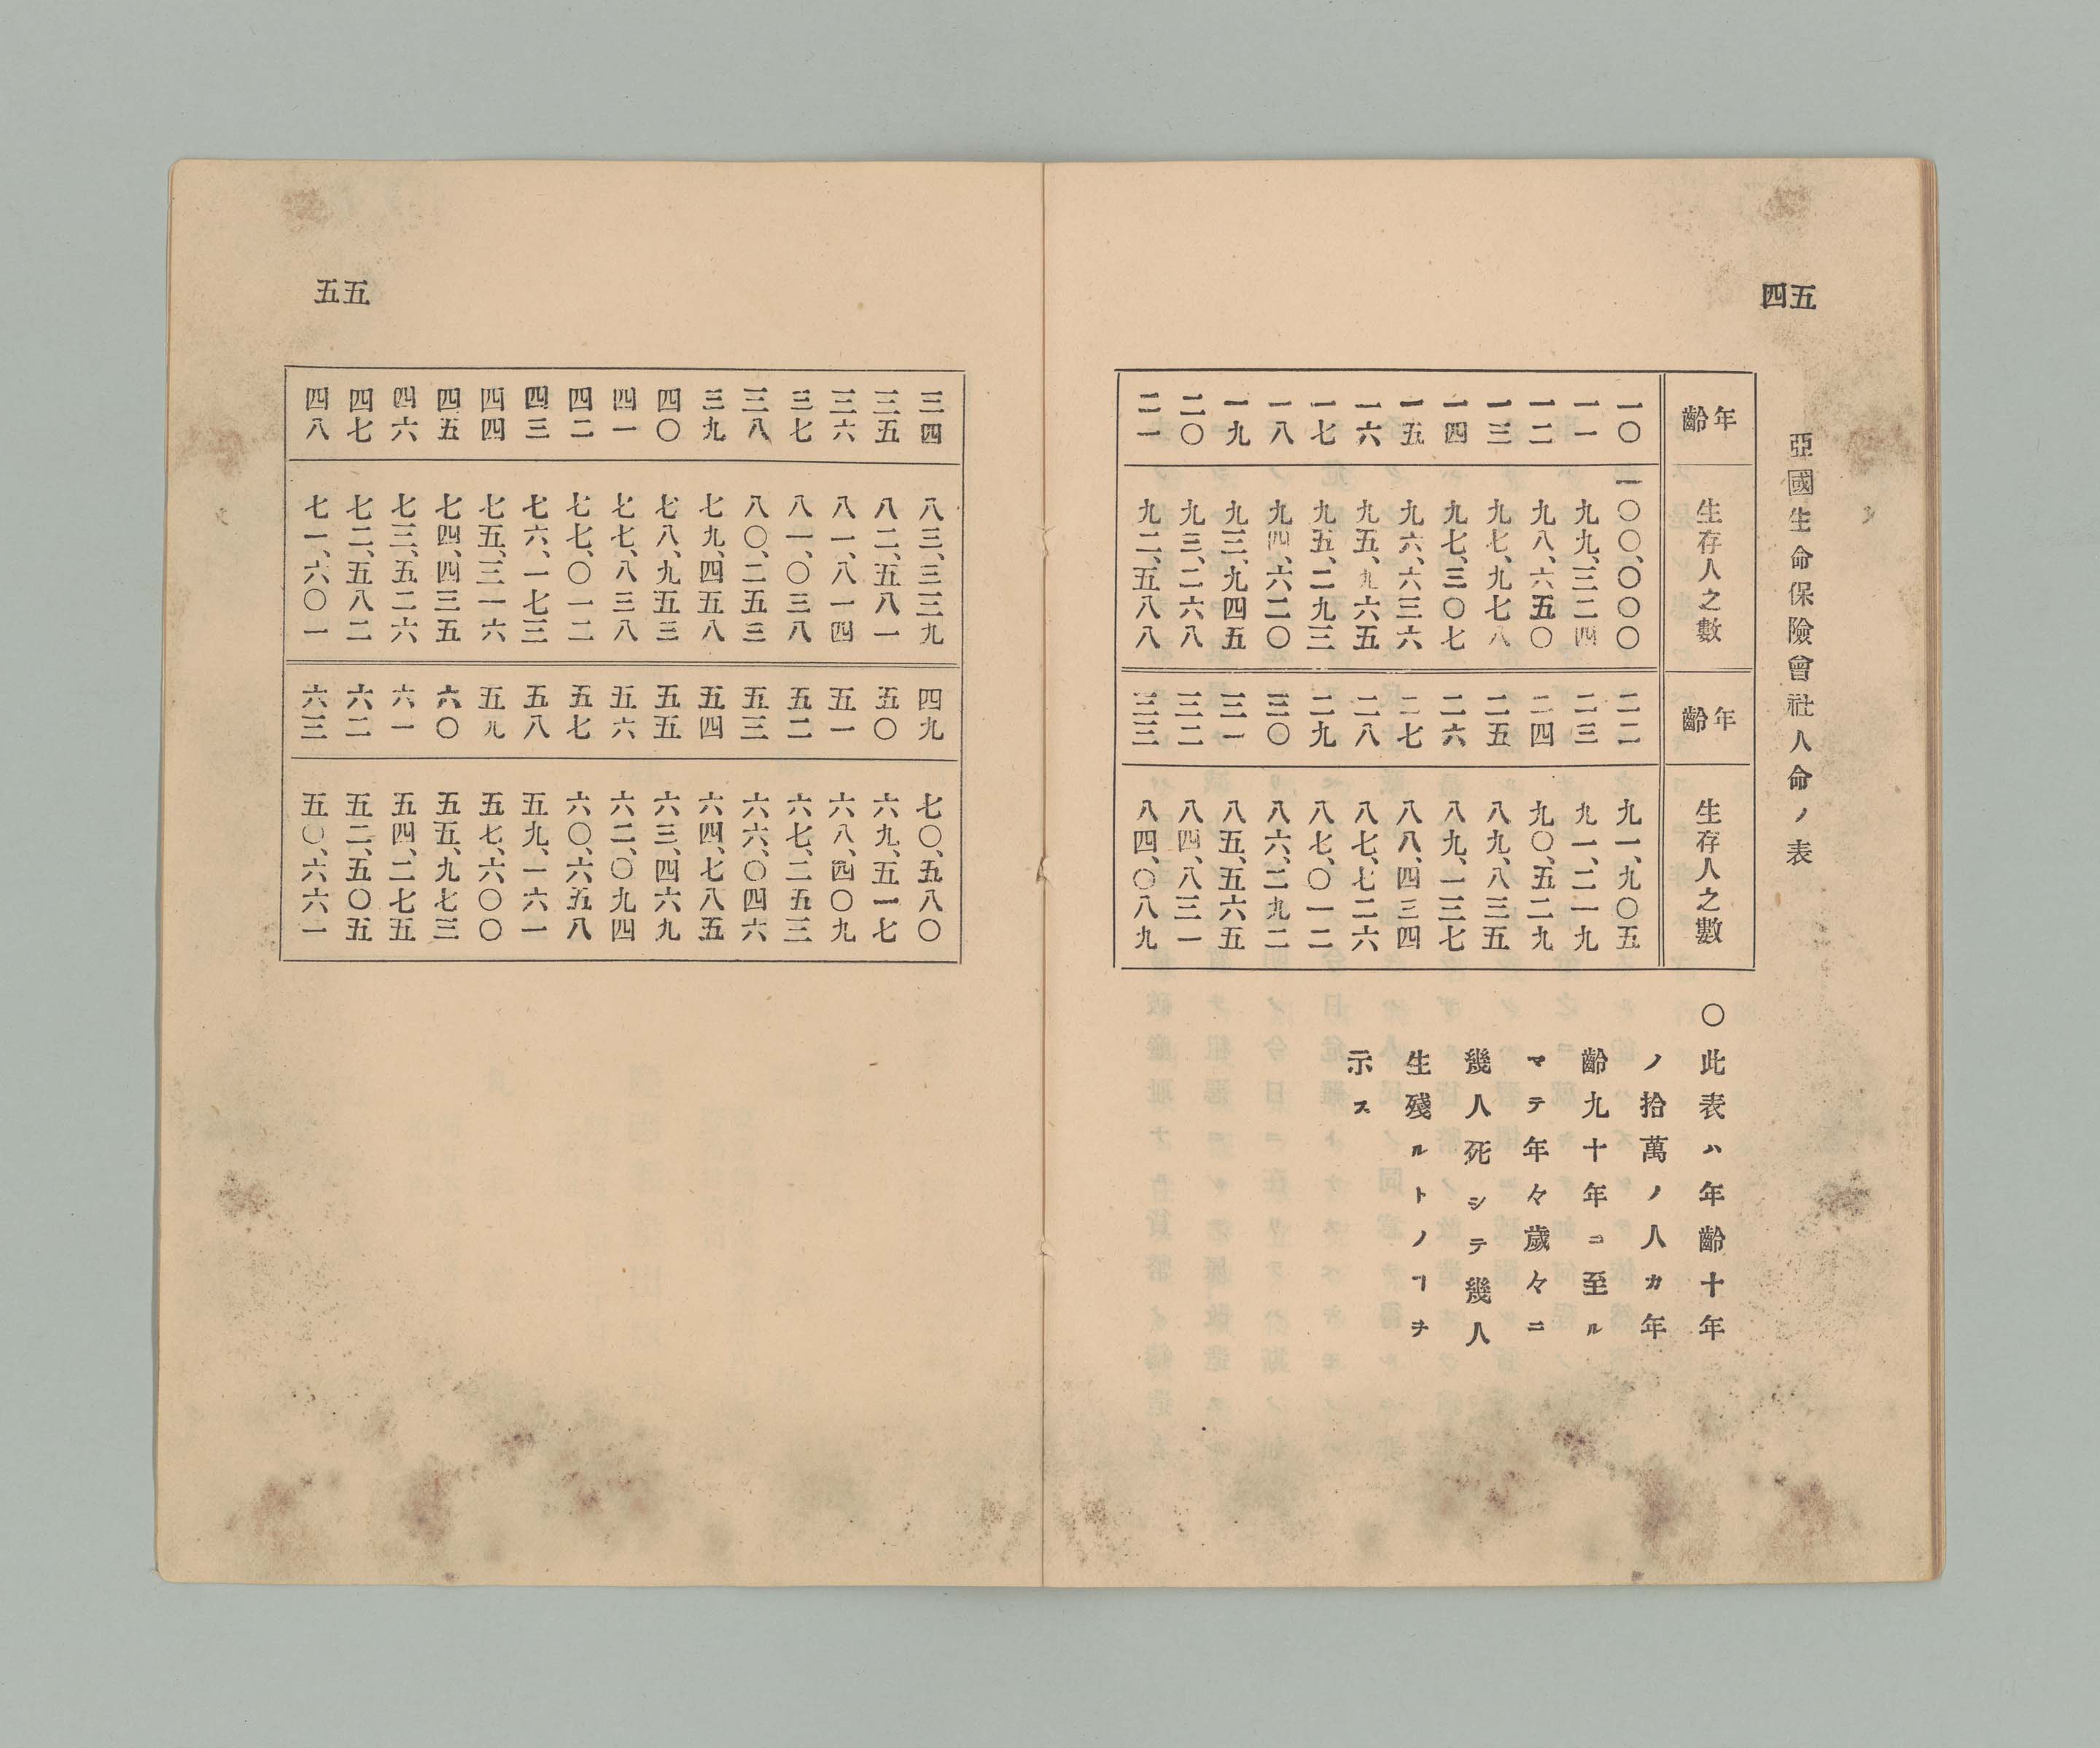 五四
亞國生命保險曾社人命ノ表
年齡 生存人之數 年齡 生存人之數
一〇 一〇〇、〇〇〇 二二 九一、九〇五
一一 九九、三二四 二三 九一、二一九
一二 九八、六五〇 二四 九〇、五二九
一三 九七、九七八 二五 八九、八三五
一四 九七、三〇七 二六 八九、一三七
一五 九六、六三六 二七 八八、四三四
一六 九五、九六五 二八 八七、七二六
一七 九五、二九三 二九 八七、〇一二
一八 九四、六二〇 三〇 八六、二九二
一九 九三、九四五 三一 八五、五六五
二〇 九三、二六八 三二 八四、八三一
二一 九二、五八八 三三 八四、〇八九
〇此表ハ年齡十年
ノ拾萬ノ人カ年
齡九十年コ至ル
マテ年々歲々ニ
幾人死シテ幾人
生殘ルトノヿヲ
示ス
五五
三四 八三、三三九 四九 七〇、五八〇
三五 八二、五八一 五〇 六九、五一七
三六 八一、八一四 五一 六八、四〇九
三七 八一、〇三八 五二 六七、二五三
三八 八〇、二五三 五三 六六、〇四六
三九 七九、四五八 五四 六四、七八五
四〇 七八、九五三 五五 六三、四六九
四一 七七、八三八 五六 六二、〇九四
四二 七七、〇一二 五七 六〇、六五八
四三 七六、一七三 五八 五九、一六一
四四 七五、三一六 五九 五七、六〇〇
四五 七四、四三五 六〇 五五、九七三
四六 七三、五二六 六一 五四、二七五
四七 七二、五八二 六二 五二、五〇五
四八 七一、六〇一 六三 五〇、六六一